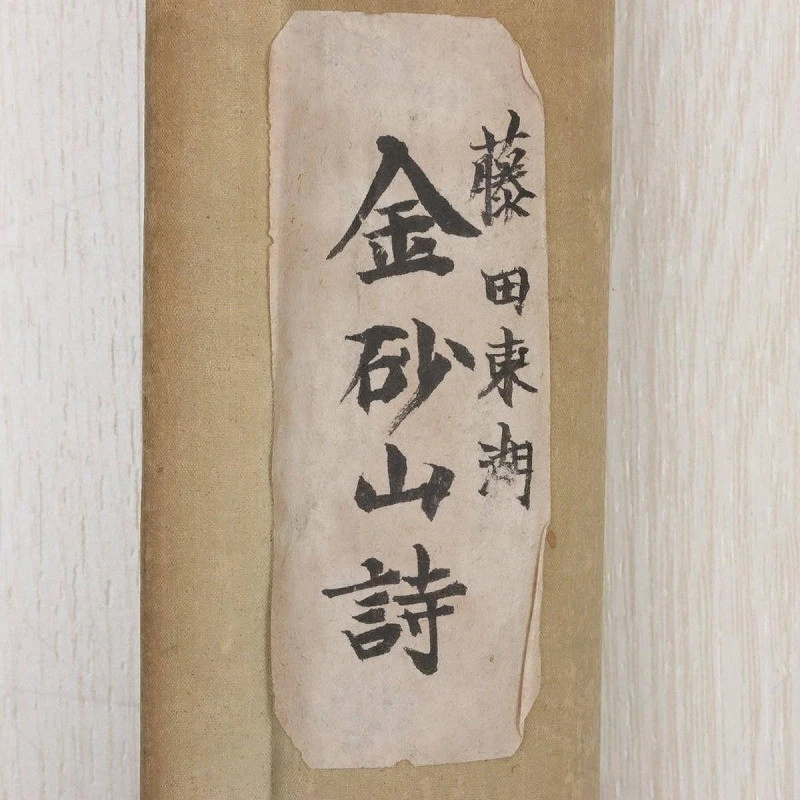 藤田東湖
金砂山詩